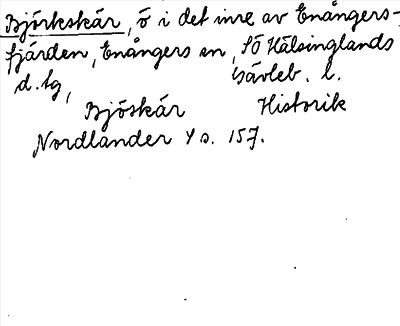 Björkskär, ö i det inre av Enångers-
fjärden, Enångers sn, SÖ Hälsinglands
d. tg, Gävleb. l.
Bjöskär Historik
Nordlander 4 s. 157.